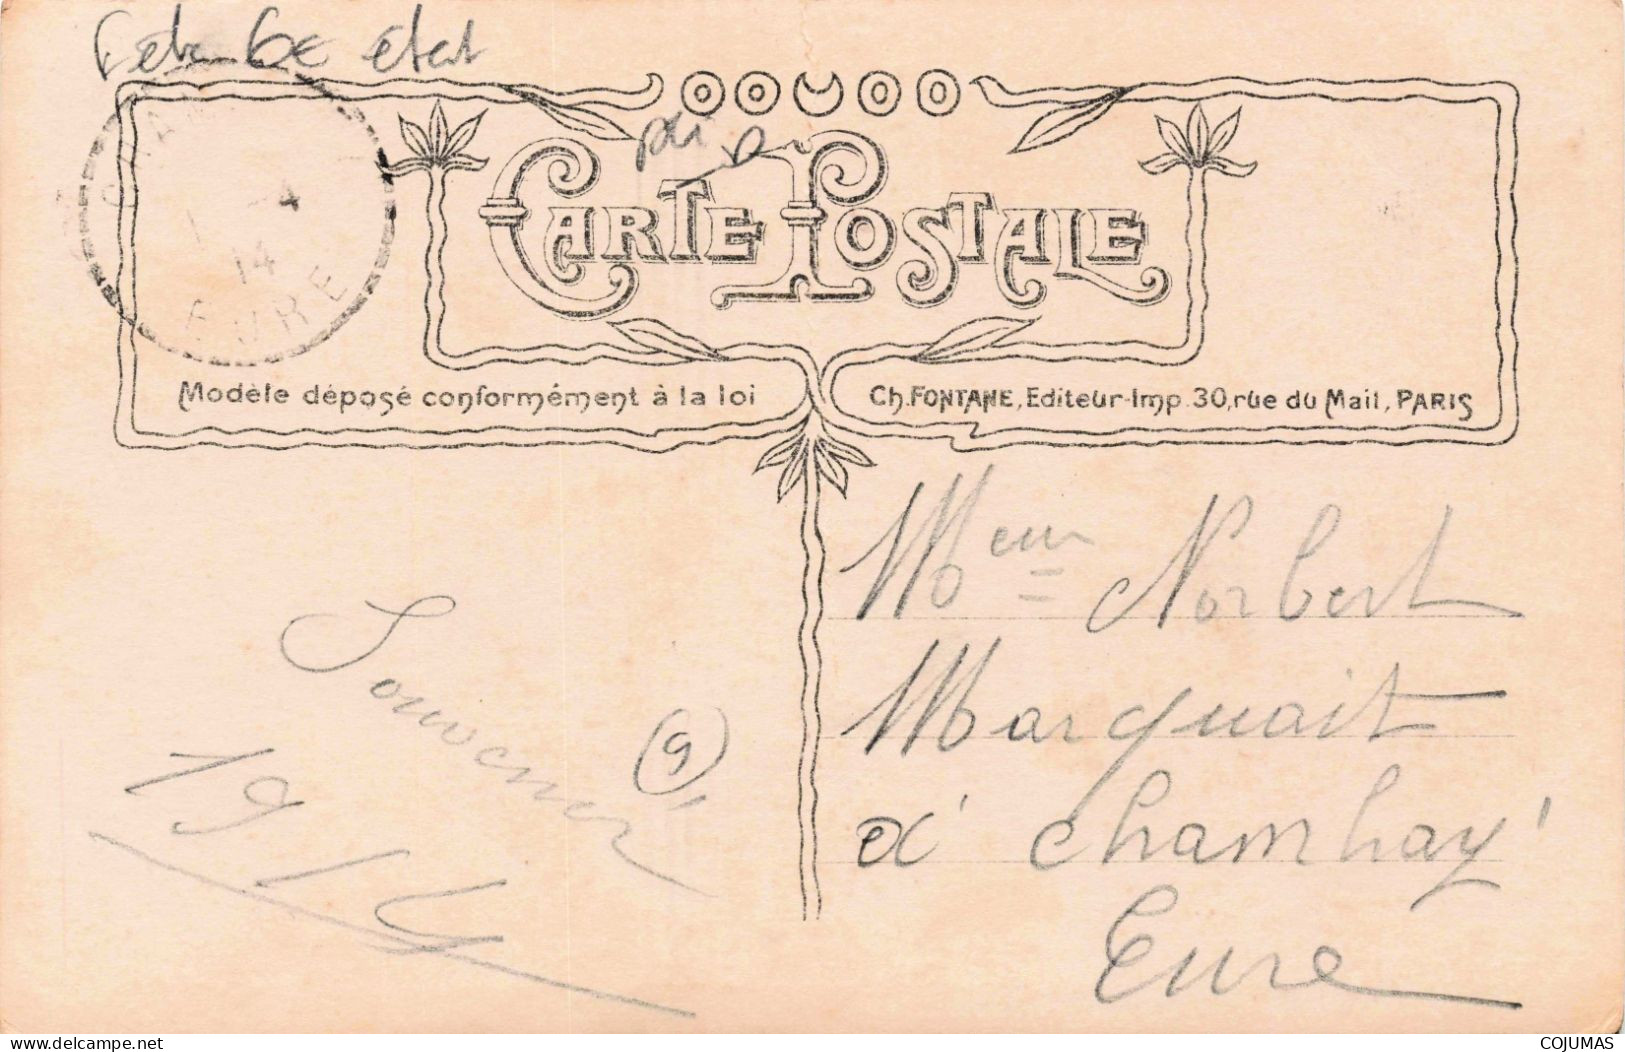 6€ état
pli
CARTE POSTALE
1 - 4
14
EURE
Modèle déposé conformément à la loi
Ch. FONTANE, Editeur-Imp. 30, rue du Mail, PARIS
Souvenir
1914
9
Meur Norbert
Marquait
à Chambray
Eure
COJUMAS